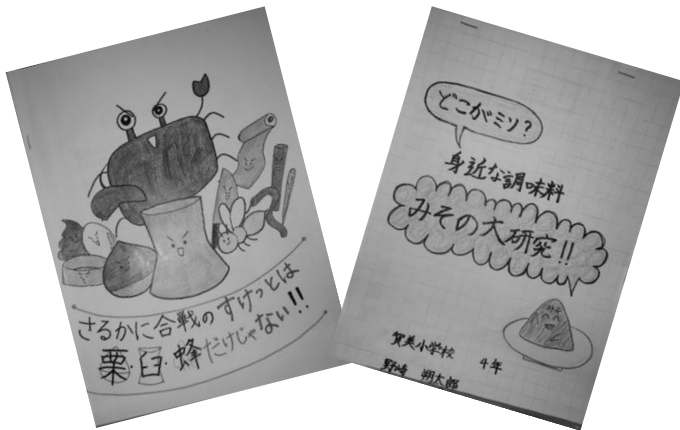 さるかに合戦のすけっとは
栗・臼・蜂だけじゃない!!
どこがミソ?
身近な調味料
みその大研究!!
みそ
賀美小学校 4年
野崎 朔太郎